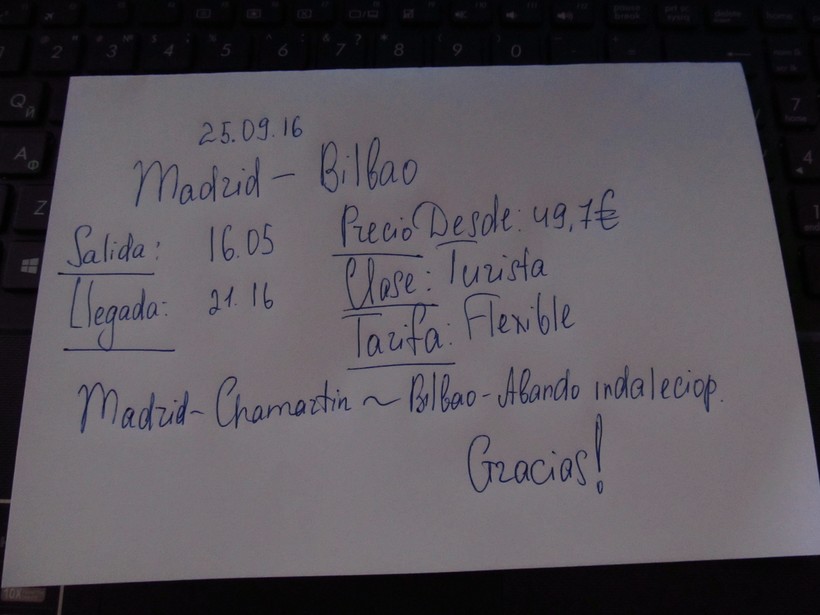 25.09.16
Madrid - Bilbao
Salida: 16.05
Llegada: 21.16
Precio Desde: 49,7€
Clase: Turista
Tarifa: Flexible
Madrid - Chamartin ~ Bilbao - Abando indaleciop.
Gracias!